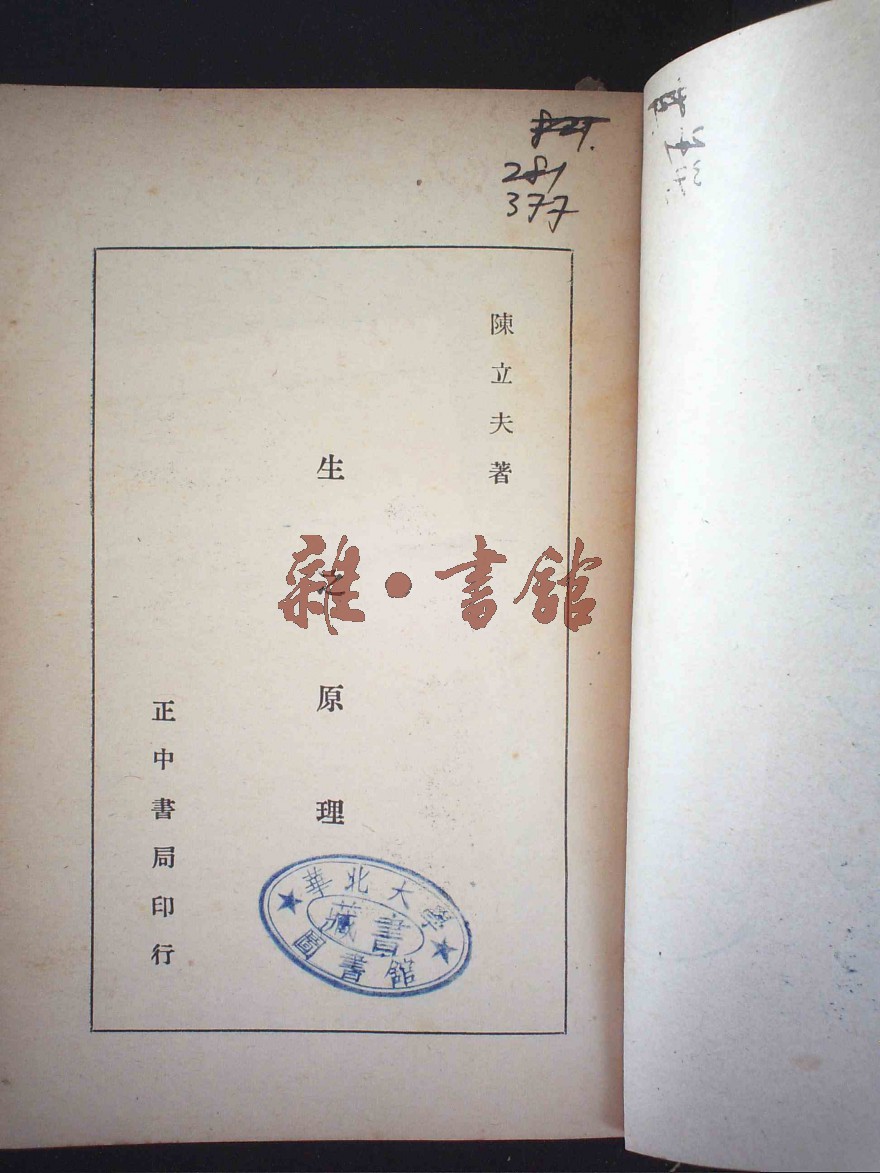 281
377
陳立夫著
生之原理
正中書局印行
雜·書館
華北大學
藏書
圖書館